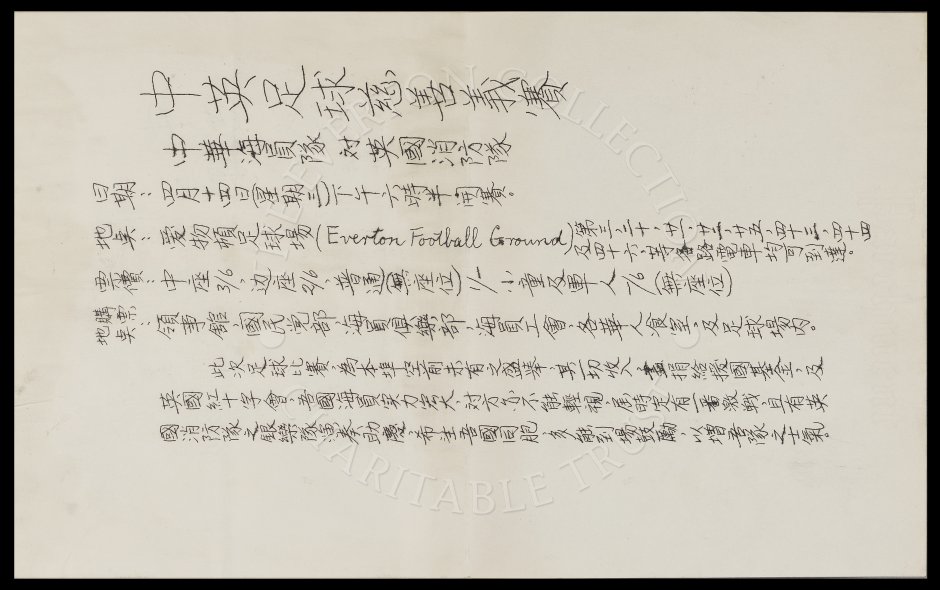 中英足球慈善義賽
中華海員隊 對 英國消防隊
日期：四月十四日(星期三)下午六時半開賽。
地點：愛物頓足球場(Everton Football Ground)第二、三、十、廿一、廿二、廿五、四十三、四十四
及四十六、等各路電車均可到達。
票價：中座3/6、边座2/6、普通(無座位)1/-小童及軍人-/6(無座位)
購票地點：領事館、國民党部、海員俱樂部、海員工會、各華人食室、及足球場內。
此次足球比賽、為本埠空前未有之盛舉、其一切收入、盡捐給援國基金、及
英國紅十字會、吾國海員實力宏大、對方亦不能輕視、屆時定有一番激戰、且有英
國消防隊之銀樂隊演奏助慶、希生吾國同胞、多能到場鼓勵、以增吾隊之士氣。
EVERTON COLLECTION
CHARITABLE TRUST